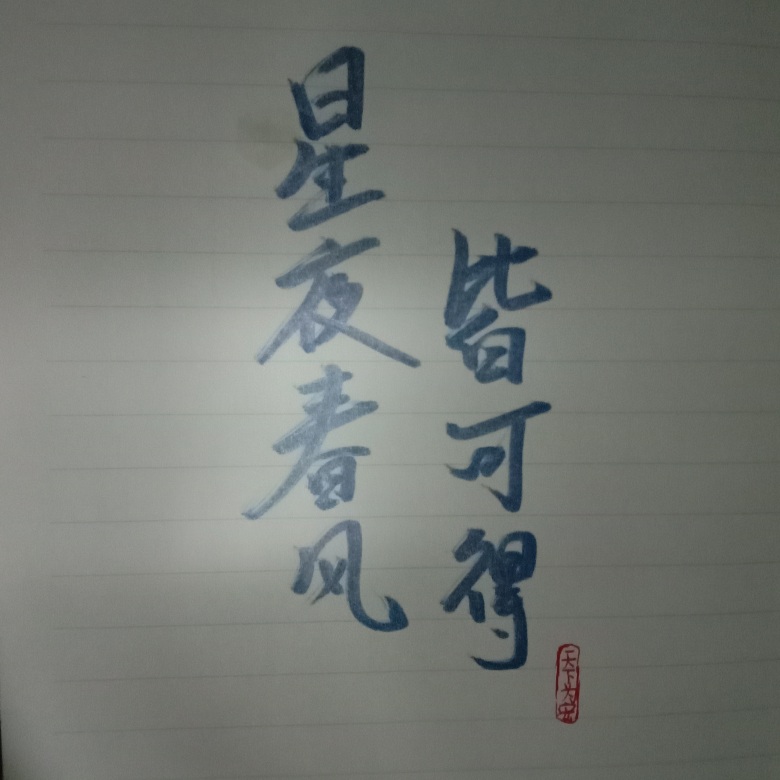 星夜春风
皆可得